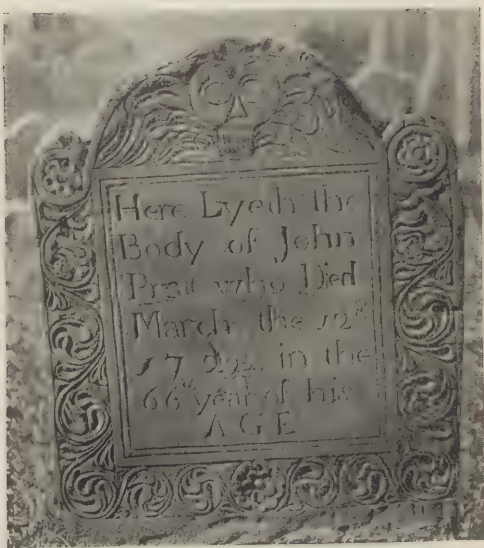 Here Lyeth the
Body of John
who Died
March the 12th
in the
66th year of his
AGE